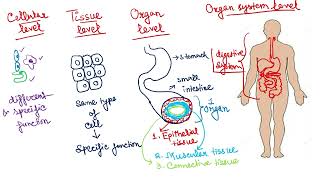 Cellular
level
different
& specific
function
Tissue
level
Same type
of
cell
Specific function
Organ
level
stomach
small
intestine
Organ
1. Epithelial
tissue
2. Muscular tissue
3. Connective tissue
Organ system level
digestive
system